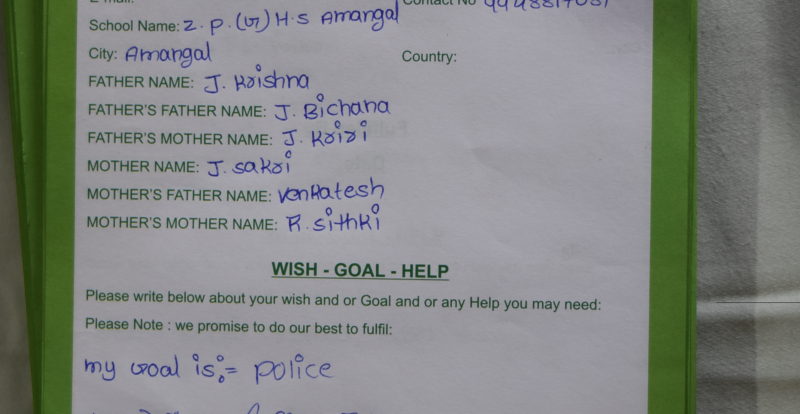 School Name: Z. P. (G) H.S Amangal
City: Amangal Country:
FATHER NAME: J. Krishna
FATHER'S FATHER NAME: J. Bichana
FATHER'S MOTHER NAME: J.
MOTHER NAME: J. sakri
MOTHER'S FATHER NAME: Venkatesh
MOTHER'S MOTHER NAME: R. sithki
WISH - GOAL - HELP
Please write below about your wish and or Goal and or any Help you may need:
Please Note : we promise to do our best to fulfil:
my Goal is:= police